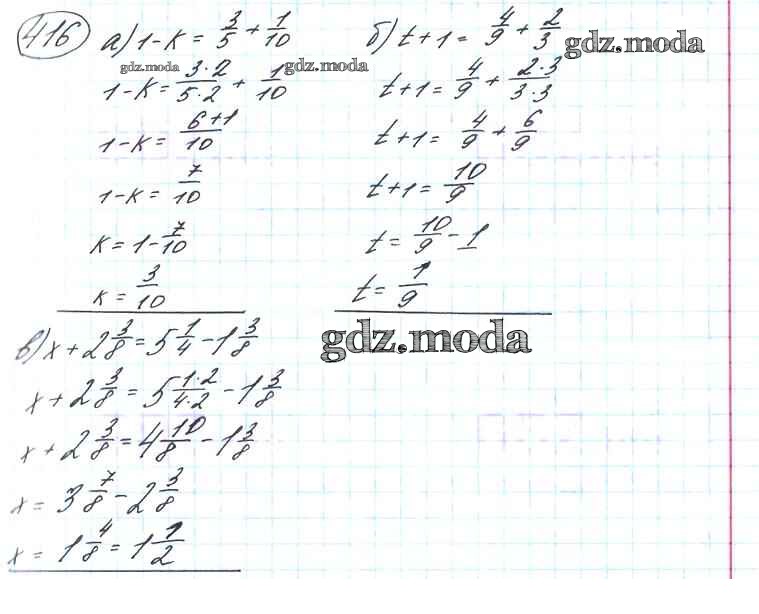 416 а) 1-к = 3/5 + 1/10
1-к = 3·2/5·2 + 1/10
1-к = 6+1/10
1-к = 7/10
к = 1 - 7/10
к = 3/10
б) t+1 = 4/9 + 2/3
t+1 = 4/9 + 2·3/3·3
t+1 = 4/9 + 6/9
t+1 = 10/9
t = 10/9 - 1
t = 1/9
в) x + 2 3/8 = 5 1/4 - 1 3/8
x + 2 3/8 = 5 1·2/4·2 - 1 3/8
x + 2 3/8 = 4 10/8 - 1 3/8
x = 3 7/8 - 2 3/8
x = 1 4/8 = 1 1/2
gdz.moda
gdz.moda
gdz.moda
gdz.moda